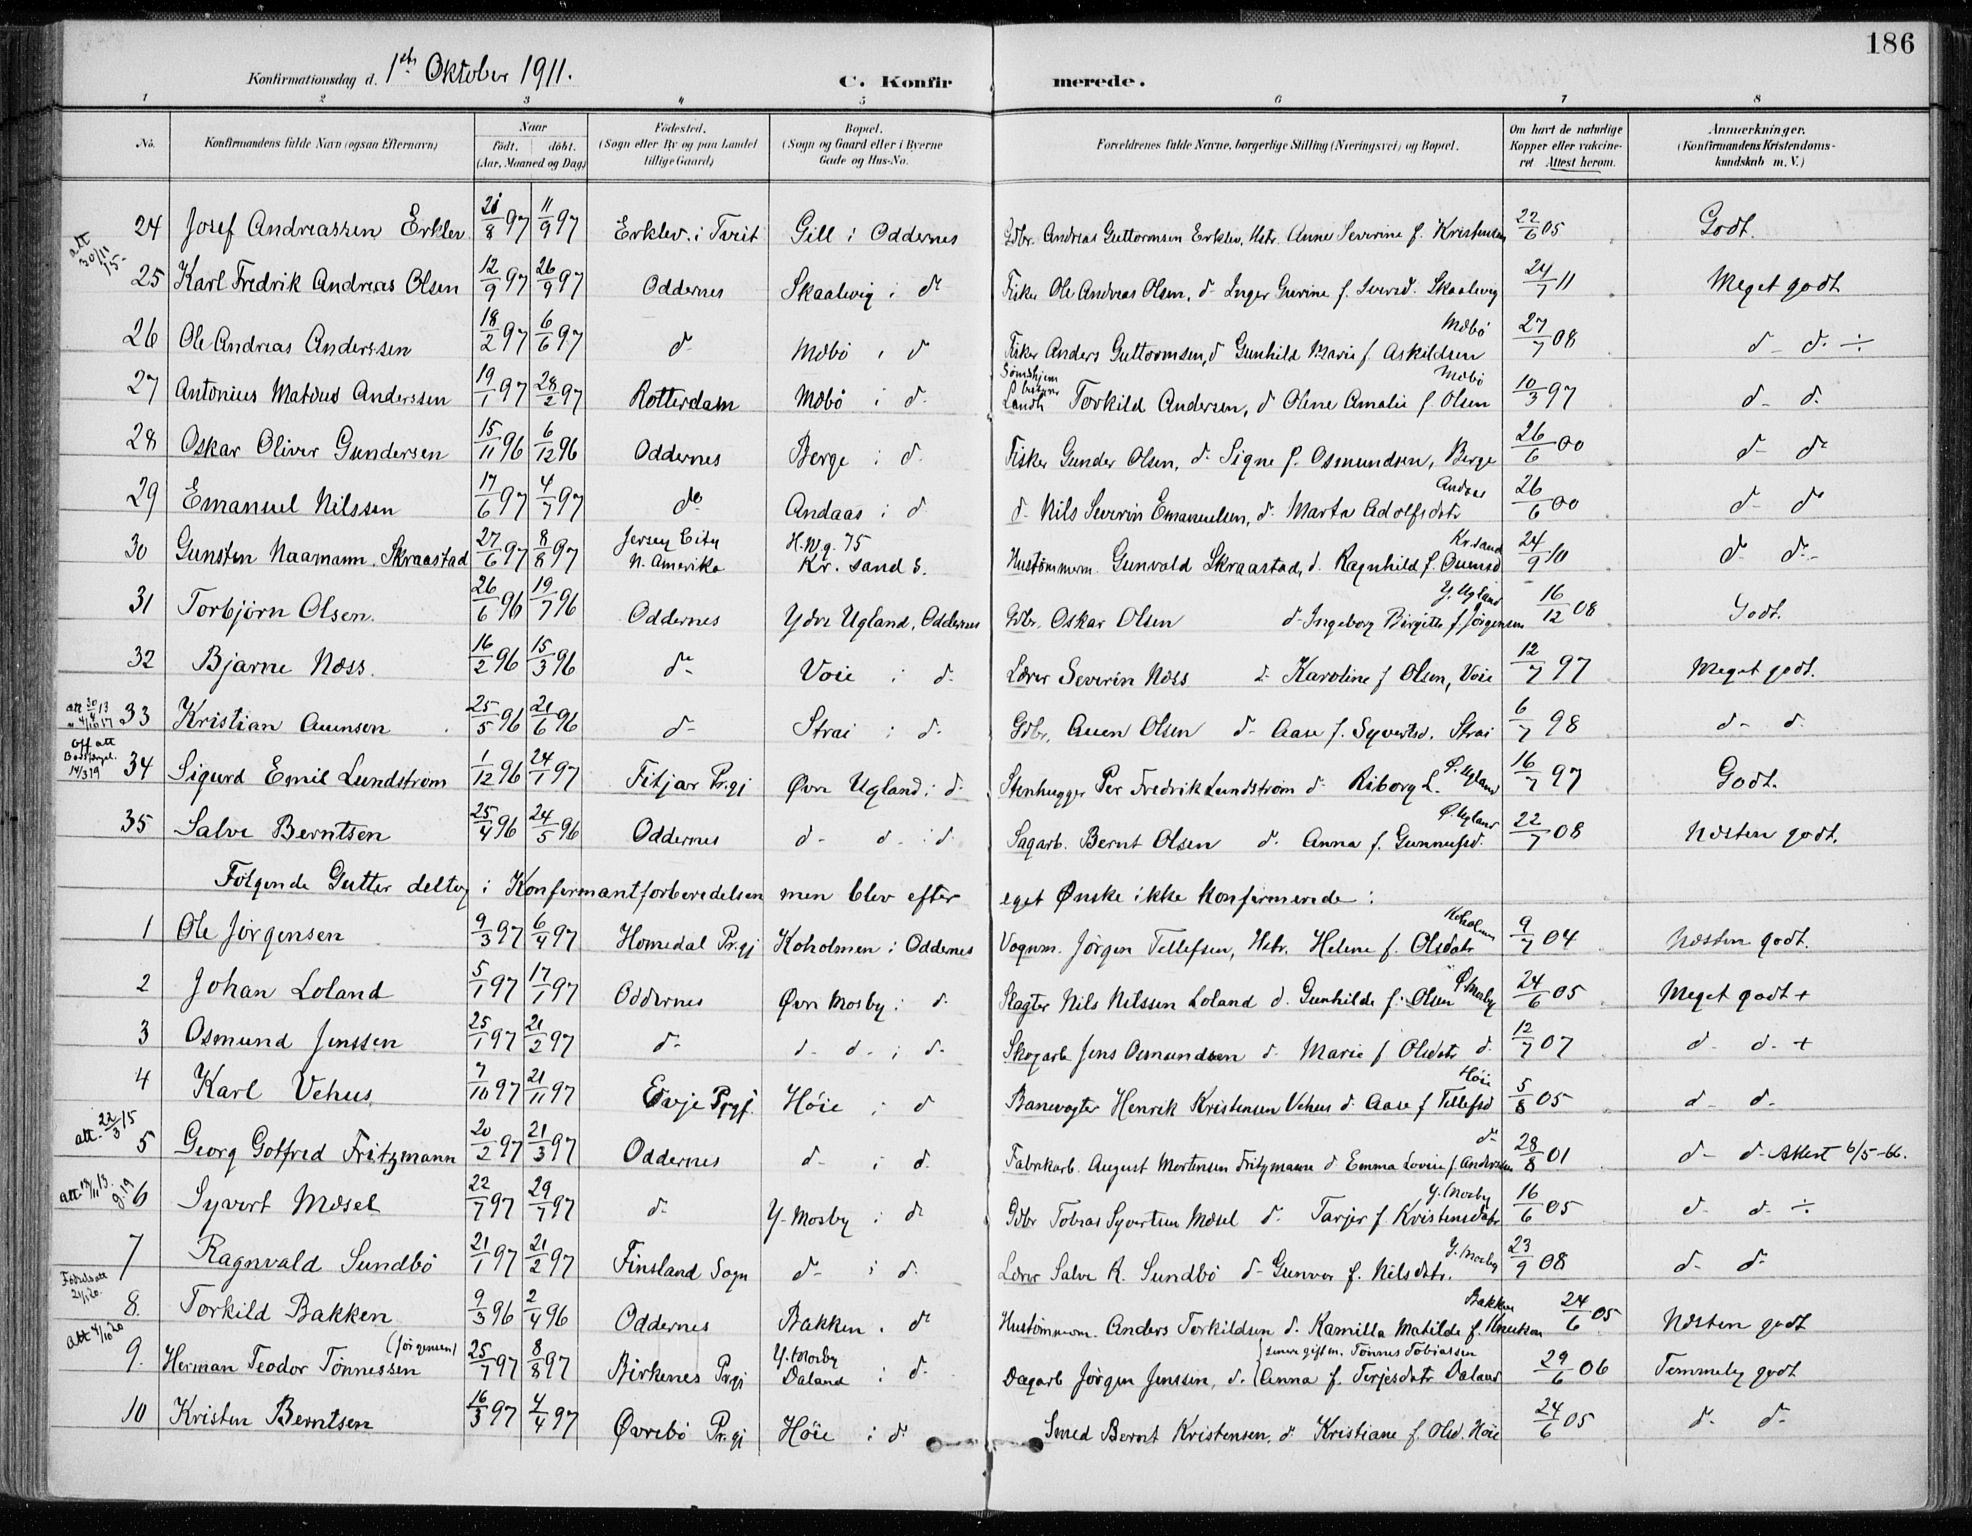 186
Konfirmationsdag d. 1ste Oktober 1911. C. Konfirmerede.
1 2 3 4 5 6 7 8
No. Konfirmandens fulde Navn (ogsaa Efternavn) Naar født. døbt. (Aar, Maaned og Dag) Fødested. (Sogn eller By og paa Landet tillige Gaard) Bopæl. (Sogn og Gaard eller i Byerne Gade og Hus-No. Forældrenes fulde Navne, borgerlige Stilling (Næringsvei) og Bopæl. Om havt de naturlige Kopper eller vakcineret. Attest herom. Anmærkninger. (Konfirmandens Kristendomskundskab m. V.)
24 Josef Andreassen Erklev 21/8 97 11/9 97 Erklev i Tveit Gill i Oddernes Gdbr. Andreas Guttormsen Erklev, Hstr. Anne Severine f. Kristensen 22/6 05 Godt.
att 30/11 15 25 Karl Fredrik Andreas Olsen 12/9 97 26/9 97 Oddernes Skaalevig i do Fisker Ole Andreas Olsen, do Inger Gurine f. Iversd. Skaalevig 24/7 11 Meget godt
26 Ole Andreas Anderssen 18/2 97 6/6 97 do Mæbø i do Fisker Anders Guttormsen, do Gunhild Marie f. Askildsen Mæbø 27/7 08 do do ÷
27 Antonius Matæus Anderssen 19/1 97 28/2 97 Rotterdam Mæbø i do Sømdshjem bestyrer Landh Torkild Andersen, do Oline Amalie f. Olsen Mæbø 10/3 97 do do
28 Oskar Oliver Gundersen 15/11 96 6/12 96 Oddernes Berge i do Fisker Gunder Olsen, do Signe f. Osmundsen, Berge 26/6 00 do do
29 Emanuel Nilssen 17/6 97 4/7 97 do Andaas i do do Nils Severin Emanuelsen, do Marta Adolfsdatr Andaas 26/6 00 do do
30 Gunsten Naamann Skraastad 27/6 97 8/8 97 Jersey City N. Amerika H.W.g. 75 Kr. sand S. Hustømmerm. Gunvald Skraastad, do Ragnhild f. Auensd Kr.sand 24/9 10 do do
31 Torbjørn Olsen. 26/6 96 19/7 96 Oddernes Ydre Ugland, Oddernes Gdbr. Oskar Olsen do Ingeborg Birgitte f. Jørgensen Y. Ugland 16/12 08 Godt.
32 Bjarne Næss. 16/2 96 15/3 96 do Voie i do Lærer Severin Næss do Karoline f Olsen, Voie 12/7 97 Meget godt.
att 30/4 13 33 Kristian Auensen 25/5 96 21/6 96 do Strai i do Gdbr. Auen Olsen do Aase f. Syvertsd. Strai 6/7 98 do do
Off att 14/3 19 34 Sigurd Emil Lundstrøm 1/12 96 24/1 97 Fitjar Pr.gj Øvre Ugland i do Stenhugger Per Fredrik Lundstrøm do Riborg L. Ø. Ugland 16/7 97 Godt.
35 Salve Berntsen 25/4 96 24/5 96 Oddernes do do i do Sagarb. Bernt Olsen do Anna f. Gunnufsd. Ø. Ugland 22/7 08 Næsten godt.
Følgende Gutter deltog i Konfirmantforberedelsen men blev efter eget Ønske ikke konfirmerede:
1 Ole Jørgensen 9/3 97 6/4 97 Homedal Pr.gj Koholmen i Oddernes Vognm. Jørgen Tellefsen, Hstr. Helene f. Olsdatr Koholmen 9/7 04 Næsten godt.
2 Johan Loland 5/1 97 17/1 97 Oddernes Øvre Mosby i do Skogter Nils Nilssen Loland do Gunhilde f. Olsen Ø. Mosby 24/6 05 Meget godt +
3 Osmund Jenssen 25/1 97 21/2 97 do do do i do Skogarb Jens Osmundsen do Marie f Olsdatr do 12/7 07 do do +
4 Karl Vehus 7/10 97 21/11 97 Evje Prgj. Høie i do Banevogter Henrik Kristensen Vehus do Aase f Tellefsd Høie 5/8 05 do do
att. 22/3 15 5 Georg Gotfred Fritzmann 20/2 97 21/3 97 Oddernes do i do Fabrikarb. August Mortensen Fritzmann do Emma Lovise f. Andersen do 28/8 01 do do Attest 6/5-66.
att. 6 Syvert Mæsel 22/7 97 29/7 97 do Y. Mosby i do Gdbr Tobias Syvertsen Mæsel do Tarjer f. Kristensdatr Y. Mosby 16/6 05 do do ÷
7 Ragnvald Sundbø 21/1 97 21/2 97 Finsland Sogn do i do Lærer Salve K. Sundbø do Gunvor f. Nilsdatr. Y. Mosby 23/9 08 do do
Fødselsatt 8. Torkild Bakken 9/3 96 2/4 96 Oddernes Bakken i do Hustømmerm. Anders Torkildsen do Kamilla Matilde f. Knutsen Bakken 24/6 05 Næsten godt
Att 4/10 20 9. Herman Teodor Tønnessen (Jørgensen) 25/7 97 8/8 97 Birkenes Pr.gj Y. Mosby Daland i do Dagarb Jørgen Jensen, do Anna f. Terjesdatr Daland (senere gift m. Tønnes Tobiassen 29/6 06 Temmelig godt
10 Kristen Berntsen 16/3 97 4/4 97 Øvrebø Pr.gj Høie i do Smed Bernt Kristensen, do Kristiane f. Olsd. Høie 24/6 05 do do